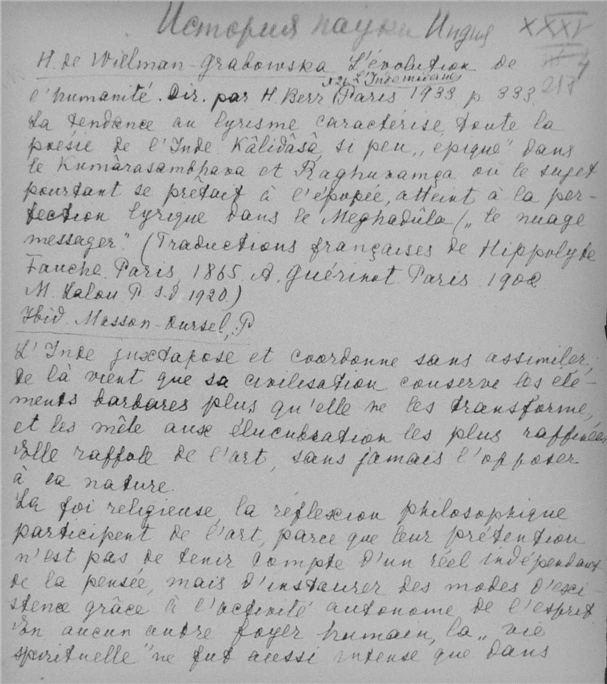 История науки Индия XXXV
H. de Wielman-Grabowska L'évolution de
№ 26 L'Inde
l'humanité. Dir. par H. Berr Paris 1933 p. 333. 217
La tendance au lyrisme caractérise toute la
poésie de l'Inde Kâlidâsâ, si peu „epique" dans
le Kumârasambhava et Raghuvamça où le sujet
pourtant se prêtait à l'épopée, atteint à la per-
fection lyrique dans le Meghadûta („le nuage
messager" (Traductions françaises de Hippolyte
Fauche Paris 1865 A. Guérinot Paris 1902
M. Lalou P. s.d 1920)
Ibid Masson-Oursel, P
L'Inde juxtapose et coordonne sans assimiler,
de là vient que sa civilisation conserve les élé-
ments barbares plus qu'elle ne les transforme,
et les mêle aux élucubration les plus raffinées
Elle raffole de l'art, sans jamais l'opposer
à la nature.
La foi religieuse, la réflexion philosophique
participent de l'art, parce que leur prétention
n'est pas de tenir compte d'un réel indépendant
de la pensée, mais d'instaurer des modes d'exi-
stence grâce à l'activité autonome de l'esprit.
En aucun autre foyer humain, la „vie
spirituelle" ne fut aussi intense que dans